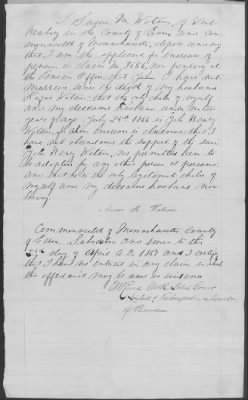 I Susan M. Watson, of West
Newbury in the County of Essex and Com-
monwealth of Massachusetts, depose and say
that I am the applicant for increase of
pension in Claim No. 3656, now pending at
the Pension Office; that
married since the death of my husband
Watson; that the only child of myself
and my deceased husband under
years of age July 25th 1866 is John Henry
Watson, for whom increase is claimed; that I
have not abandoned the support of the said
John Henry Watson, nor permitted him to
be adopted by any other person or persons;
and that he is the only legitimate child of
myself and my deceased husband now
living.
Susan M. Watson
Commonwealth of Massachusetts County
of Essex, Subscribed and sworn to this
day of April A.D. 1867 and I certify
that I have no interest in any claim in which
this affidavit may be used as evidence
Clerk